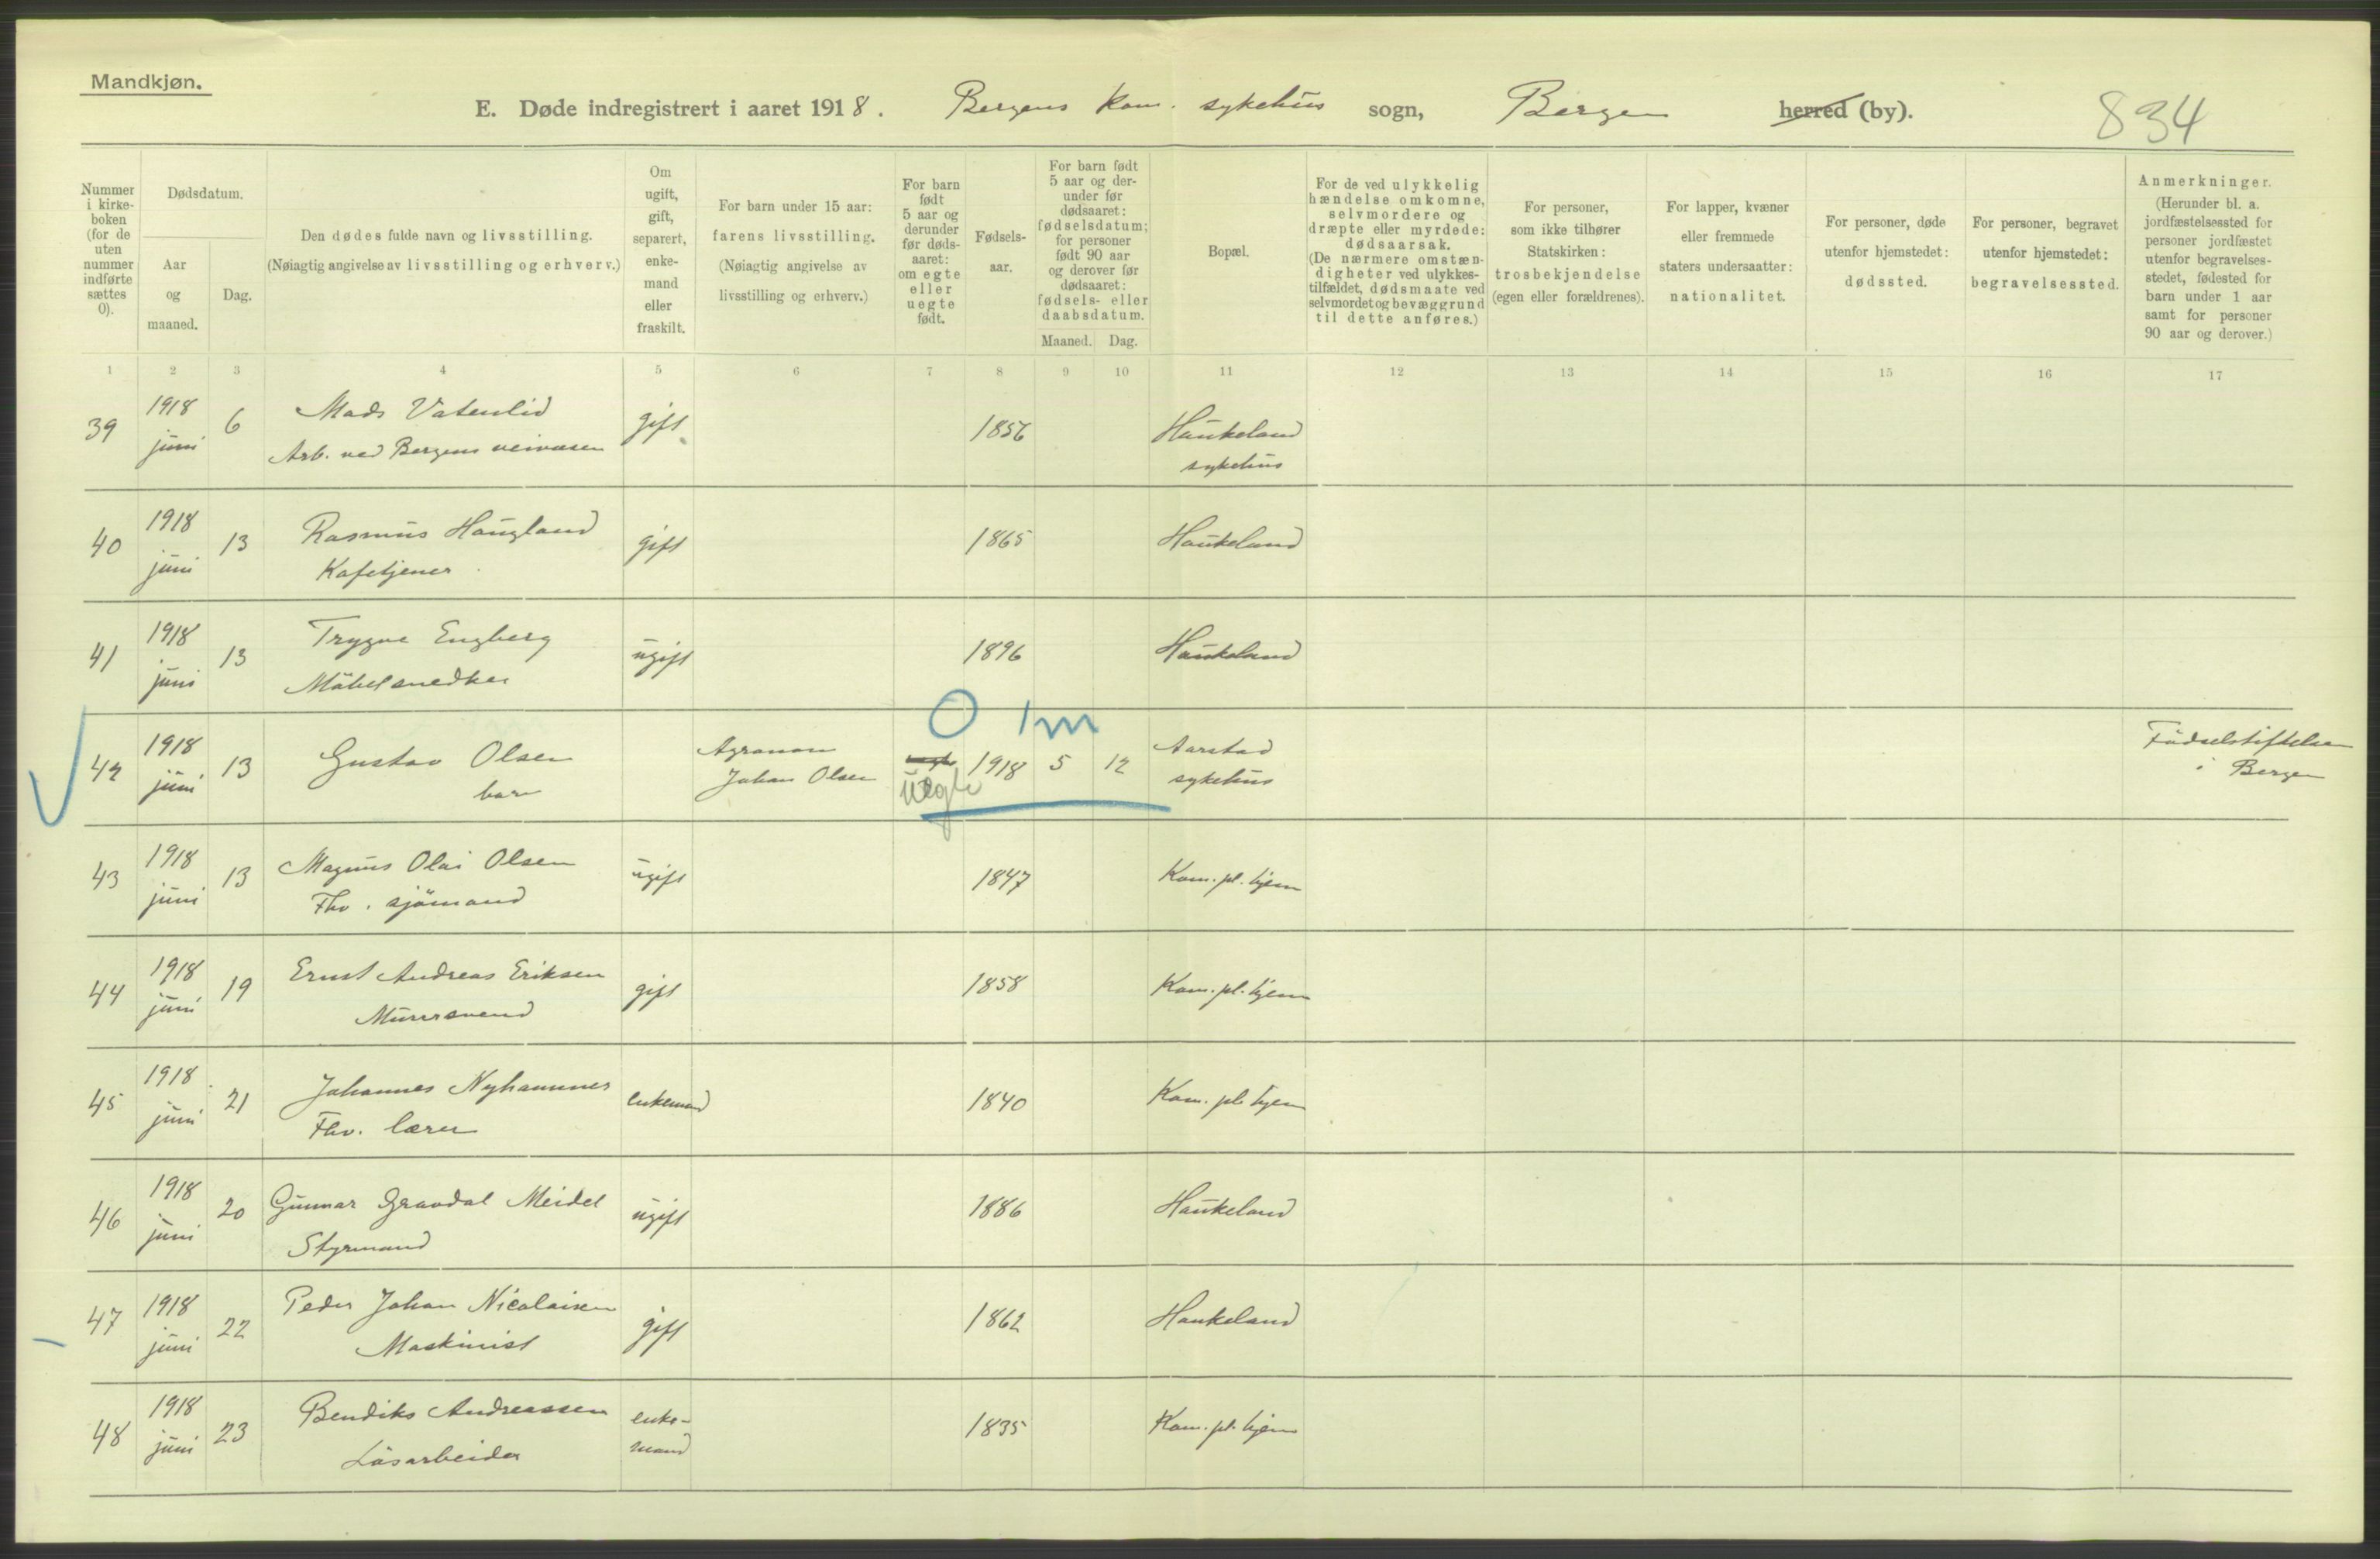 Mandkjøn.
E. Døde indregistrert i aaret 1918. Bergens kom. sykehus sogn, Bergen herred (by).
834
Nummer i kirkeboken (for de uten nummer indførte sættes 0).
Dødsdatum.
Aar og maaned.
Dag.
Den dødes fulde navn og livsstilling.
(Nøiagtig angivelse av livsstilling og erhverv.)
Om ugift, gift, separert, enkemand eller fraskilt.
For barn under 15 aar: farens livsstilling.
(Nøiagtig angivelse av livsstilling og erhverv.)
For barn født 5 aar og derunder før dødsaaret: om egte eller uegte født.
Fødselsaar.
For barn født 5 aar og derunder før dødsaaret: fødselsdatum; for personer født 90 aar og derover før dødsaaret: fødsels- eller daabsdatum.
Maaned. Dag.
Bopæl.
For de ved ulykkelig hændelse omkomne, selvmordere og dræpte eller myrdede: dødsaarsak.
(De nærmere omstændigheter ved ulykkestilfældet, dødsmaate ved selvmordet og bevæggrund til dette anføres.)
For personer, som ikke tilhører Statskirken: trosbekjendelse (egen eller forældrenes).
For lapper, kvæner eller fremmede staters undersaatter: nationalitet.
For personer, døde utenfor hjemstedet: dødssted.
For personer, begravet utenfor hjemstedet: begravelsessted.
Anmerkninger.
(Herunder bl. a. jordfæstelsessted for personer jordfæstet utenfor begravelsesstedet, fødested for barn under 1 aar samt for personer 90 aar og derover.)
1 2 3 4 5 6 7 8 9 10 11 12 13 14 15 16 17
39 1918 juni 6 Mads Vatenlid gift 1856 Haukeland sykehus
Arb. ved Bergens veivæsen
40 1918 juni 13 Rasmus Haugland gift 1865 Haukeland
Kafetjener
41 1918 juni 13 Trygve Engberg ugift 1896 Haukeland
Möbelsnedker
0 1m
42 1918 juni 13 Gustav Olsen Agronom Johan Olsen uegte 1918 5 12 Aarstad sykehus Fødselstiftelsen i Bergen
barn
43 1918 juni 13 Magnus Olai Olsen ugift 1847 Kom. pl. hjem
Fhv. sjömand
44 1918 juni 19 Ernst Andreas Eriksen gift 1858 Kom. pl. hjem
Murersvend
45 1918 juni 21 Johannes Nyhammer enkemand 1840 Kom. pl. hjem
Fhv. lærer
46 1918 juni 20 Gunnar Gravdal Meidel ugift 1886 Haukeland
Styrmand
47 1918 juni 22 Peder Johan Nicolaisen gift 1862 Haukeland
Maskinist
48 1918 juni 23 Bendiks Andreassen enkemand 1835 Kom. pl. hjem
Lösarbeider